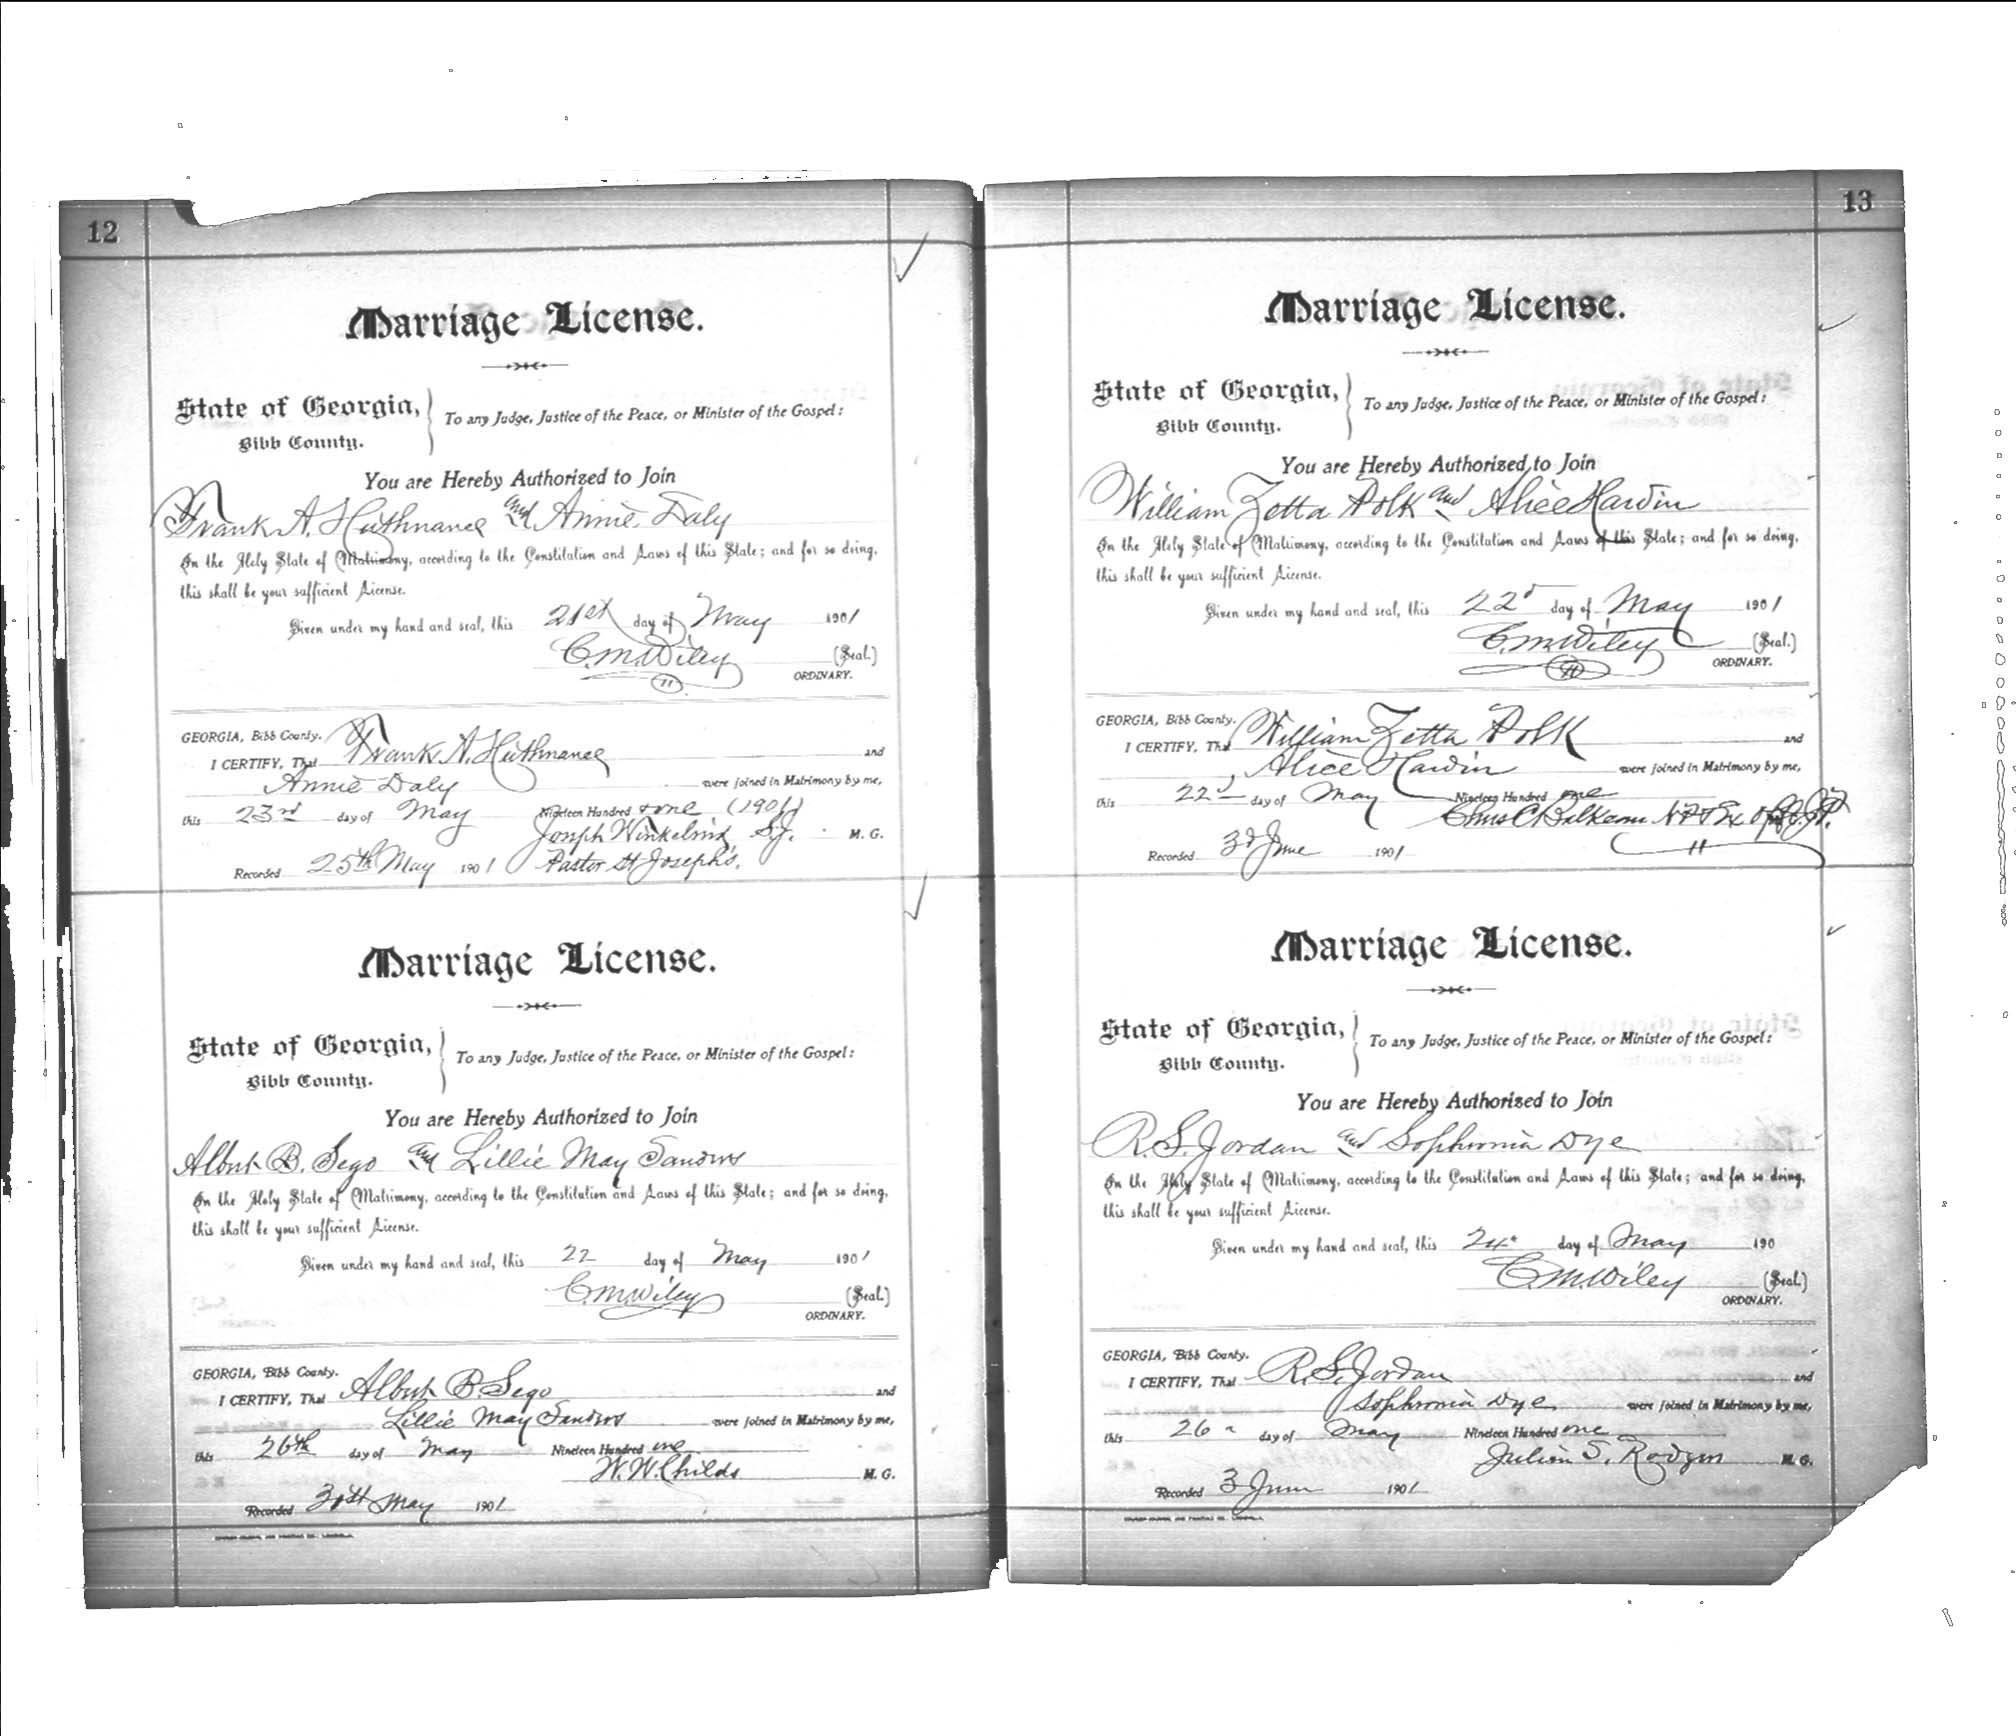 12
Marriage License.
State of Georgia,
Bibb County.
To any Judge, Justice of the Peace, or Minister of the Gospel:
You are Hereby Authorized to Join
Frank A. Huthnance and Annie Daly
In the Holy State of Matrimony, according to the Constitution and Laws of this State; and for so doing,
this shall be your sufficient License.
Given under my hand and seal, this 21st day of May 1901
C. M. Wiley (Seal.)
ORDINARY.
GEORGIA, Bibb County.
I CERTIFY, That Frank A. Huthnance and
Annie Daly were joined in Matrimony by me,
this 23rd day of May Nineteen Hundred + one (1901)
Joseph Winkelried S.J. M. G.
Recorded 25th May 1901 Pastor St Joseph's.
Marriage License.
State of Georgia,
Bibb County.
To any Judge, Justice of the Peace, or Minister of the Gospel:
You are Hereby Authorized to Join
Albert B. Sego and Lillie May Sanders
In the Holy State of Matrimony, according to the Constitution and Laws of this State; and for so doing,
this shall be your sufficient License.
Given under my hand and seal, this 22 day of May 1901
C. M. Wiley (Seal.)
ORDINARY.
GEORGIA, Bibb County.
I CERTIFY, That Albert B. Sego and
Lillie May Sanders were joined in Matrimony by me,
this 26th day of May Nineteen Hundred one
W. W. Childs M. G.
Recorded May 1901
13
Marriage License.
State of Georgia,
Bibb County.
To any Judge, Justice of the Peace, or Minister of the Gospel:
You are Hereby Authorized to Join
William Zetta Polk and Alice Hardin
In the Holy State of Matrimony, according to the Constitution and Laws of this State; and for so doing,
this shall be your sufficient License.
Given under my hand and seal, this 22d day of May 1901
C. M. Wiley (Seal.)
ORDINARY.
GEORGIA, Bibb County.
I CERTIFY, That William Zetta Polk and
Alice Hardin were joined in Matrimony by me,
this 22d day of May Nineteen Hundred one
Chas C Balkcom
Recorded 3d June 1901
Marriage License.
State of Georgia,
Bibb County.
To any Judge, Justice of the Peace, or Minister of the Gospel:
You are Hereby Authorized to Join
R. S. Jordan and Sophronia Dye
In the Holy State of Matrimony, according to the Constitution and Laws of this State; and for so doing,
this shall be your sufficient License.
Given under my hand and seal, this 24 day of May 190
C. M. Wiley (Seal.)
ORDINARY.
GEORGIA, Bibb County.
I CERTIFY, That R. S. Jordan and
Sophronia Dye were joined in Matrimony by me,
this 26 day of May Nineteen Hundred one
Julian S. Rodgers M. G.
Recorded 3 June 1901